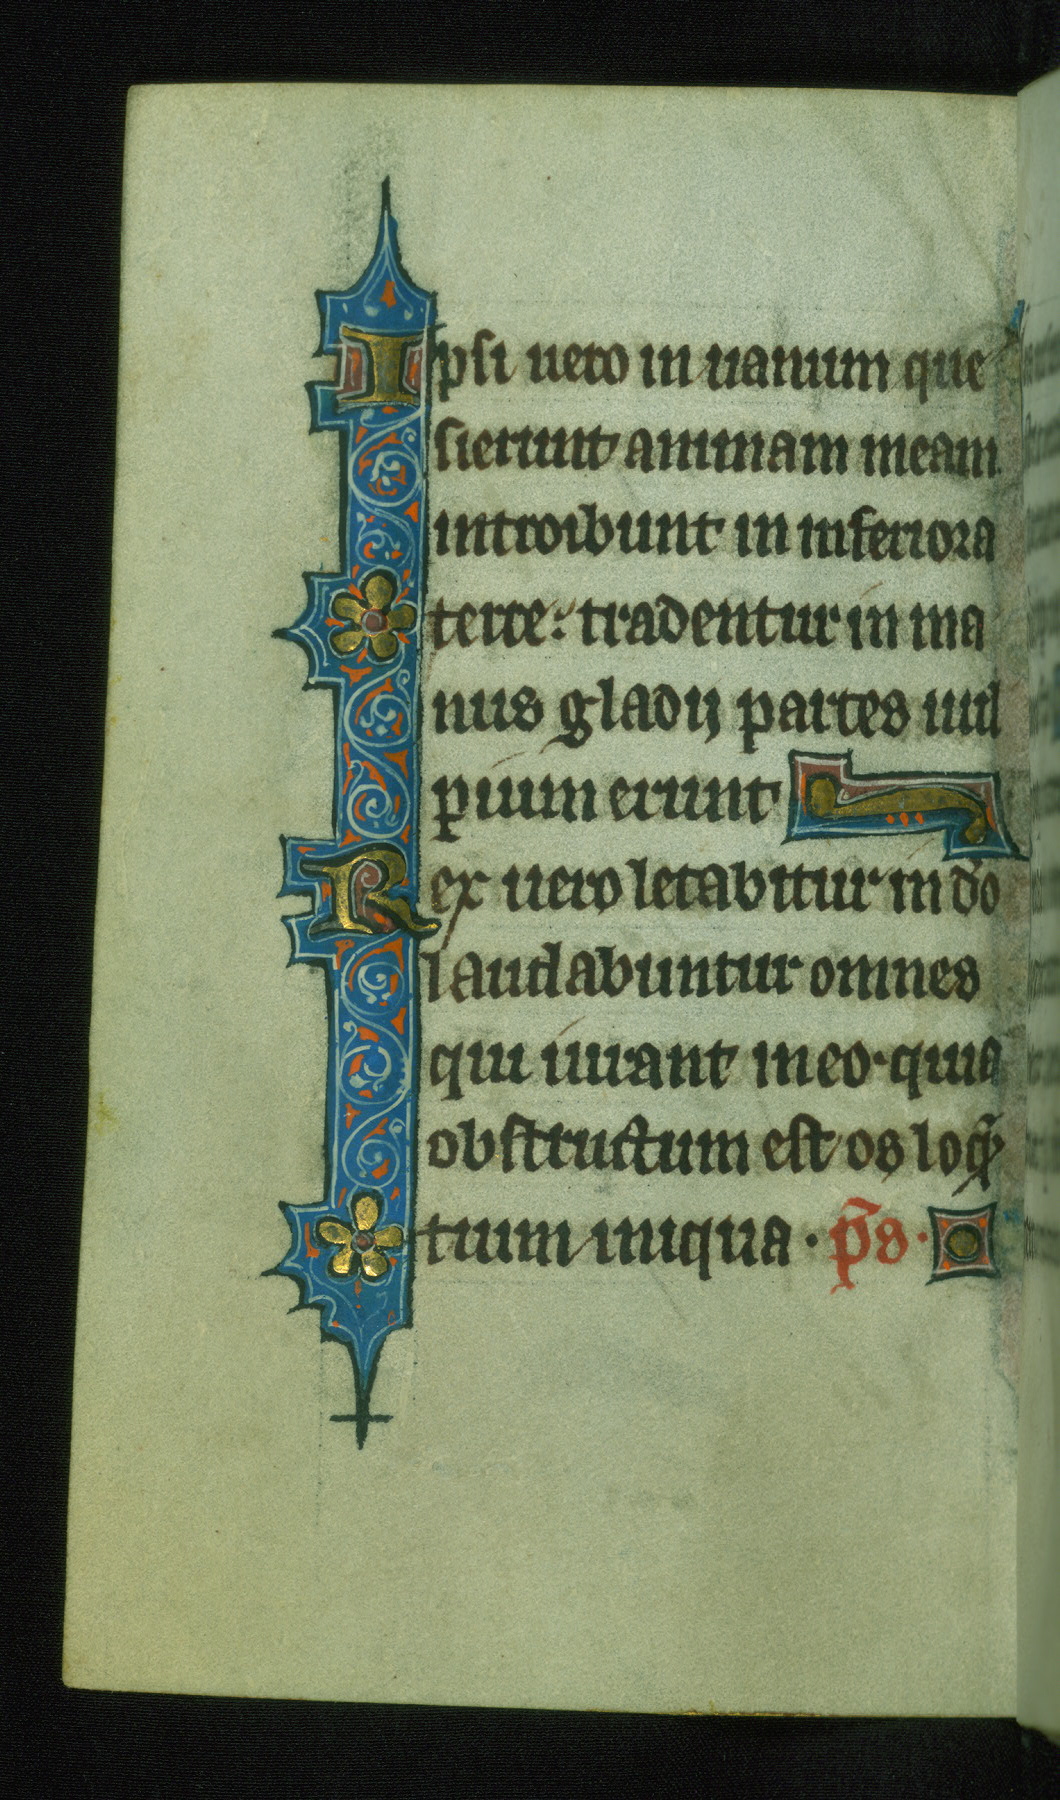 Ipsi uero in uanum que
sierunt animam meam
introibunt in inferiora
terre: tradentur in ma
nus gladij partes uul
pium erunt
Rex uero letabitur in dō
laudabuntur omnes
qui iurant in eo·quia
obstructum est os loqͣ
tium iniqua · p̄s ·